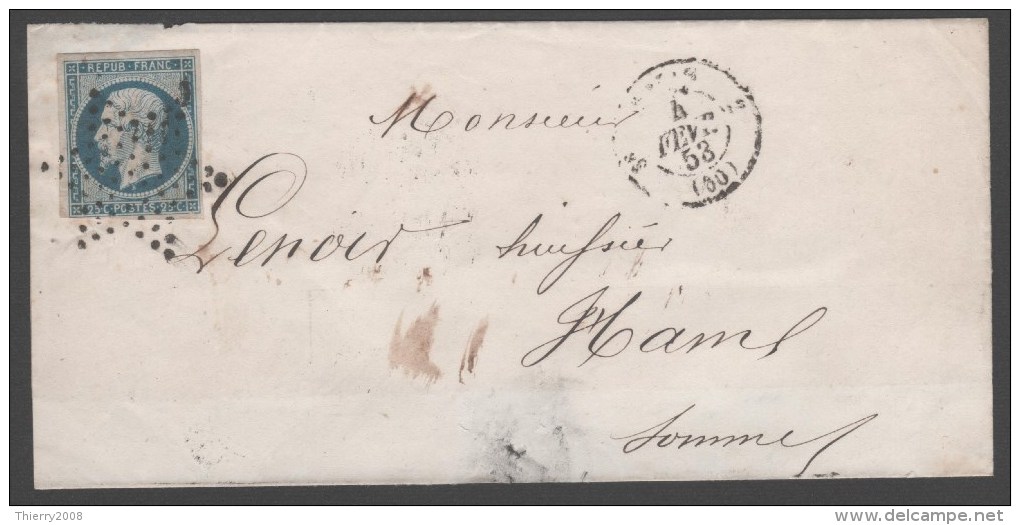 REPUB FRANC
25 C · POSTES · 25 C
4
FEVR
53
(60)
Monsieur
Lenoir huissier
Ham
Somme
Thierry2008
delcampe.net